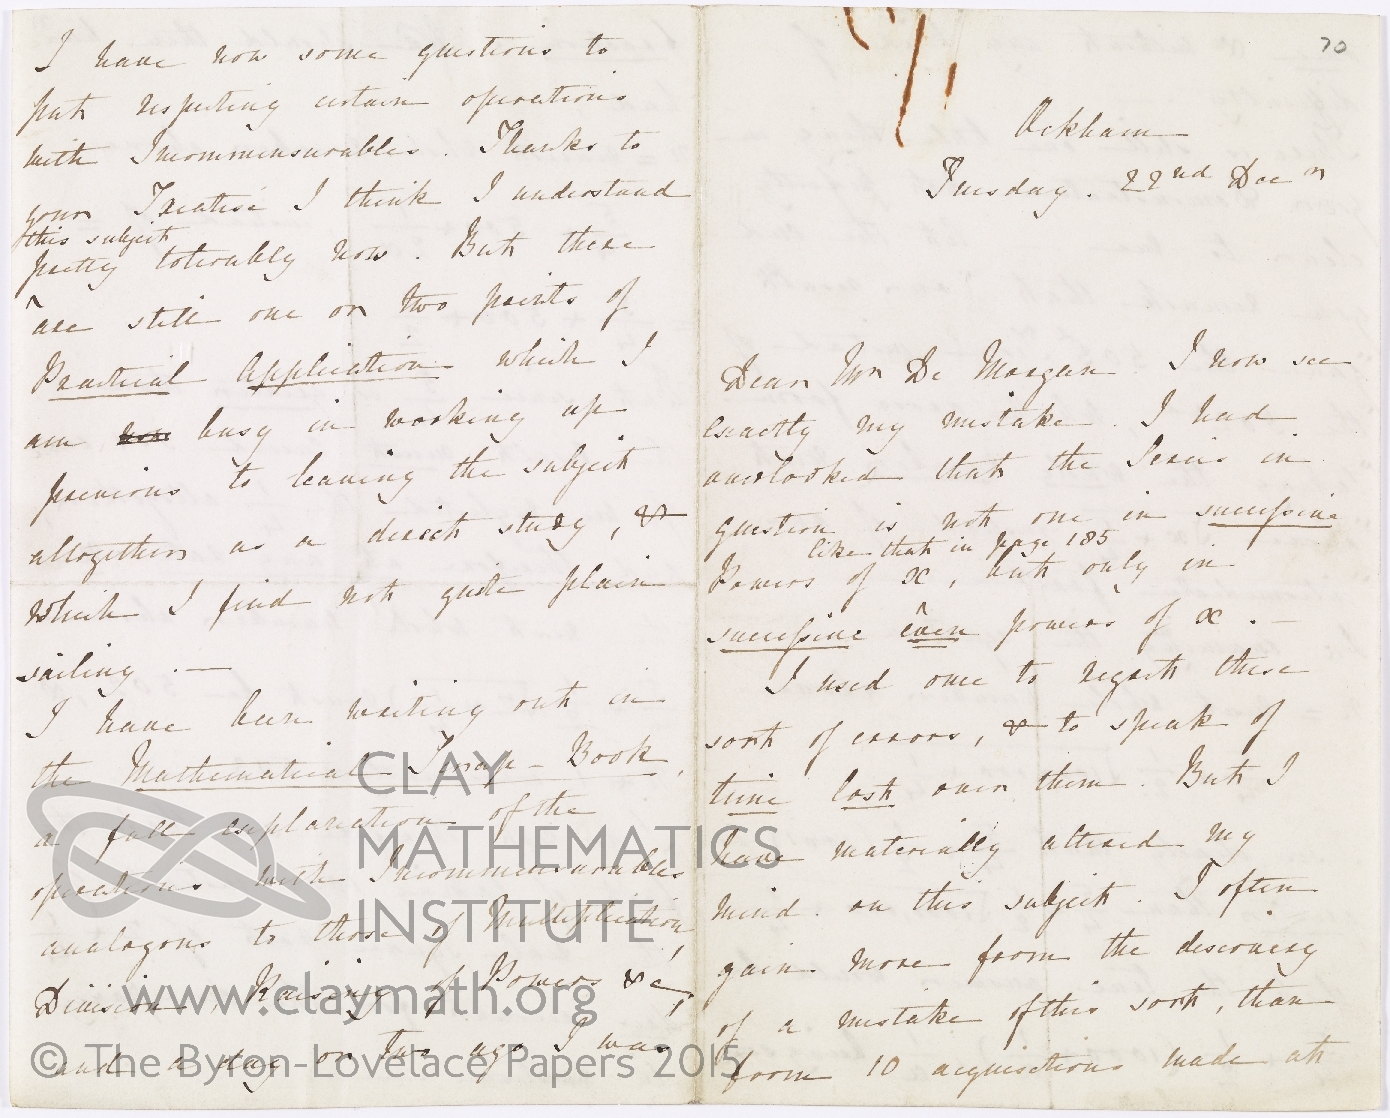 70
Ockham
Tuesday. 22nd Decr
Dear Mr De Morgan. I now see
exactly my mistake. I had
overlooked that the Series in
question is not one in successive
like that in page 185
Powers of x, but only in
successive even powers of x. —
I used once to regret these
sort of errors, & to speak of
time lost over them. But I
have materially altered my
mind on this subject. I often
gain more from the discovery
of a mistake of this sort, than
from 10 acquisitions made at
I have now some questions to
put respecting certain operations
with Incommensurables. Thanks to
your Treatise I think I understand
this subject
pretty tolerably now. But there
are still one or two points of
Practical Application which I
am now busy in working up
previous to leaving the subject
altogether as a direct study, &
which I find not quite plain
sailing. —
I have been writing out in
the Mathematical Scrap-Book,
a full explanation of the
operations with Incommensurables
analogous to those of Multiplication,
Division, Raising of Powers &c,
and a day or two ago I was
CLAY
MATHEMATICS
INSTITUTE
www.claymath.org
© The Byron-Lovelace Papers 2015